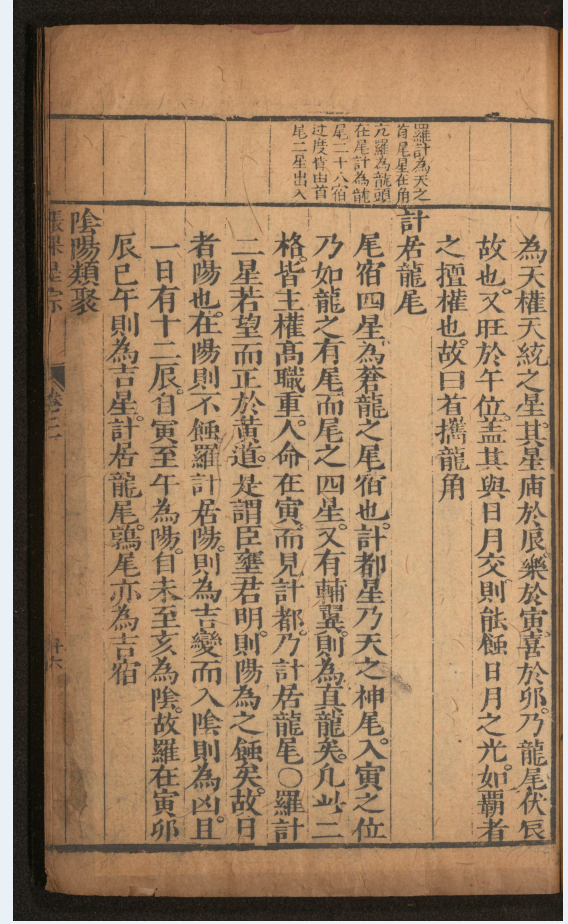 羅計為天之
首尾星在角
亢羅為龍頭
在尾計為龍
尾二十八宿
過度皆由首
尾二星出入
為天權天統之星其星庙於辰樂於寅喜於卯乃龍尾伏辰
故也又旺於午位盖其與日月交則能蝕日月之光如覇者
之擅權也故曰首攜龍角
計居龍尾
尾宿四星為蒼龍之尾宿也計都星乃天之神尾入寅之位
乃如龍之有尾而尾之四星又有輔翼則為真龍矣凡此二
格皆主權髙職重人命在寅而見計都乃計居龍尾〇羅計
二星若望而正於黃道是謂臣壅君明則陽為之蝕矣故日
者陽也在陽則不蝕羅計居陽則為吉變而入陰則為凶且
一日有十二辰自寅至午為陽自未至亥為陰故羅在寅卯
辰巳午則為吉星計居龍尾鶉尾亦為吉宿
陰陽類聚
張果星宗
卷之二